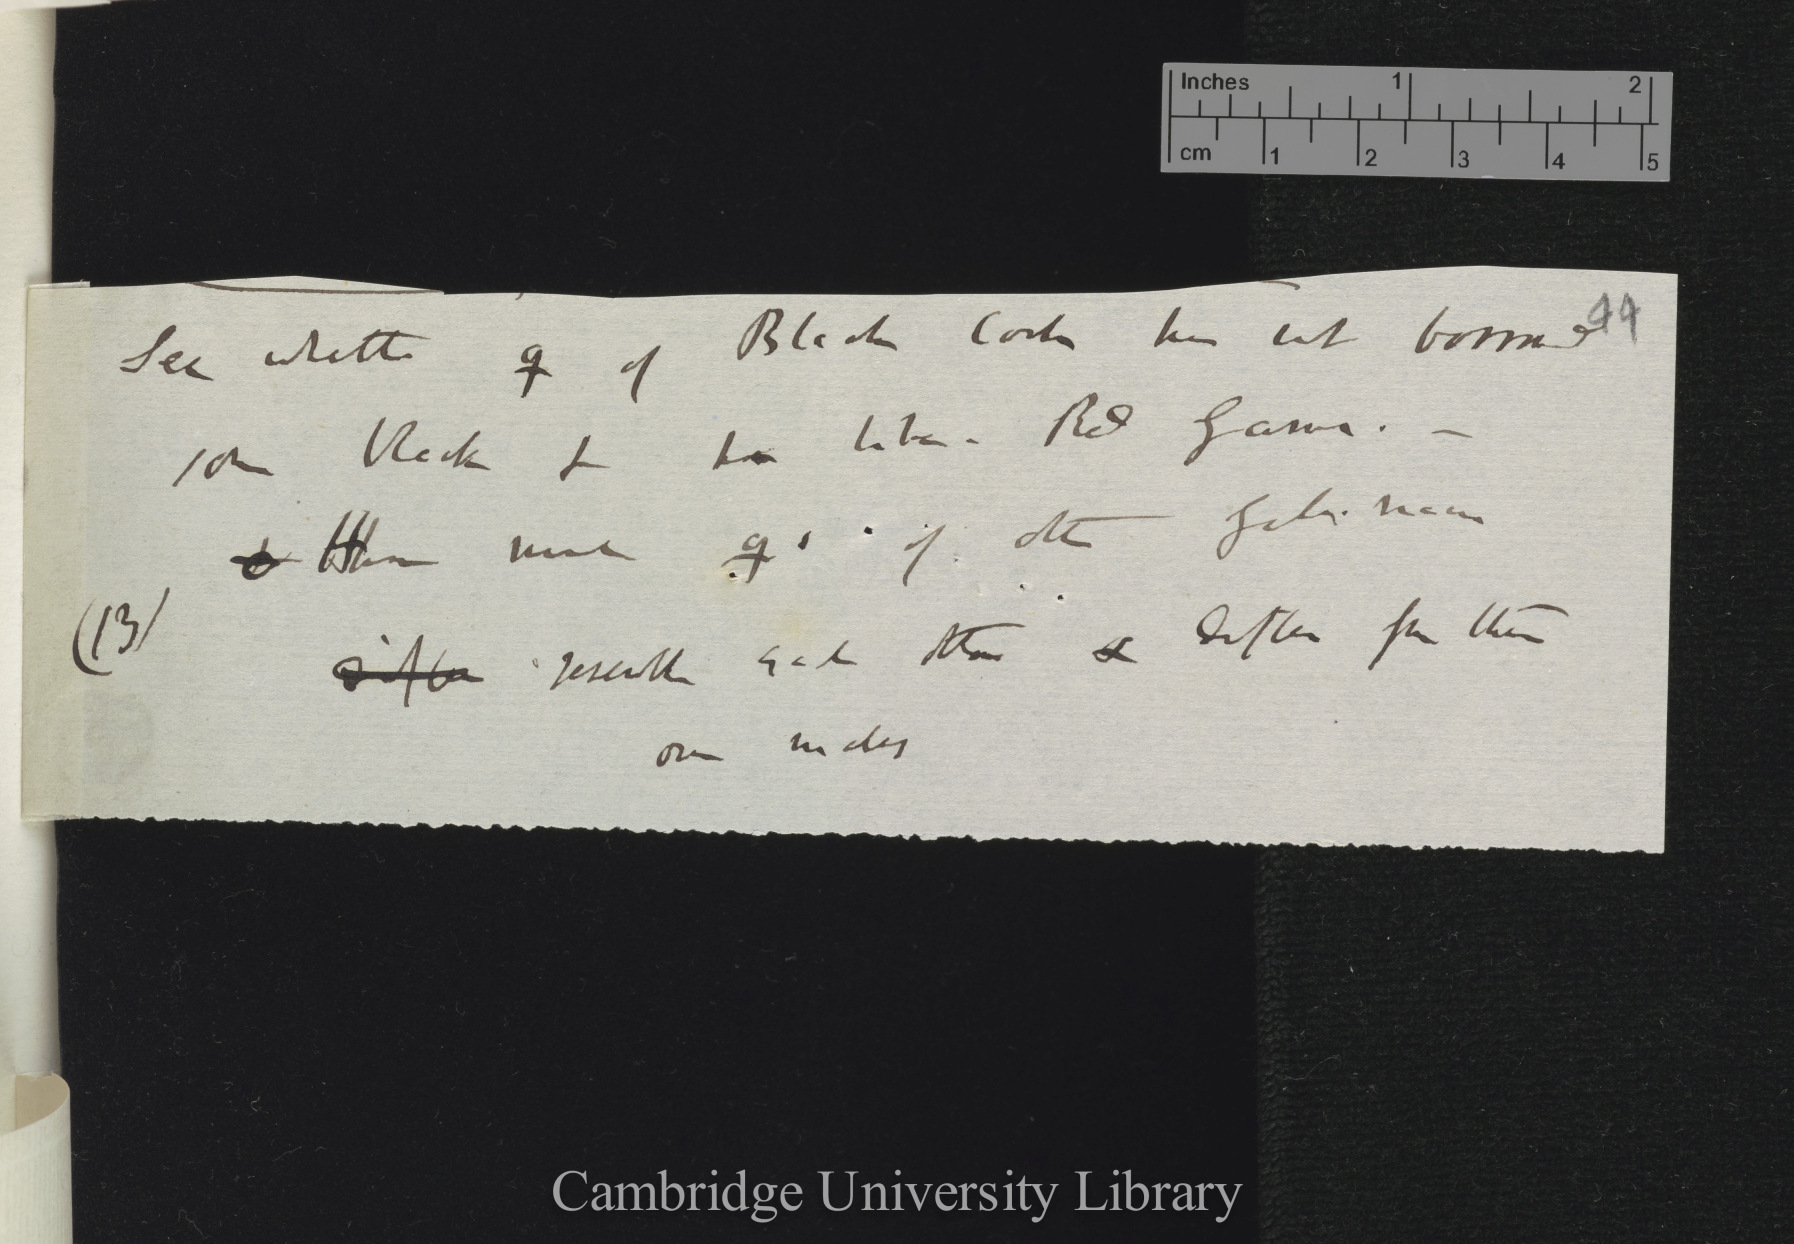 Inches 1 2
cm 1 2 3 4 5
44
See whether ♀ of Black Cock has not borrowed
some black & than taken Red Game. –
How much ♀s of other Gallinaceæ
(13)
resemble each other & differ from their
own males
Cambridge University Library